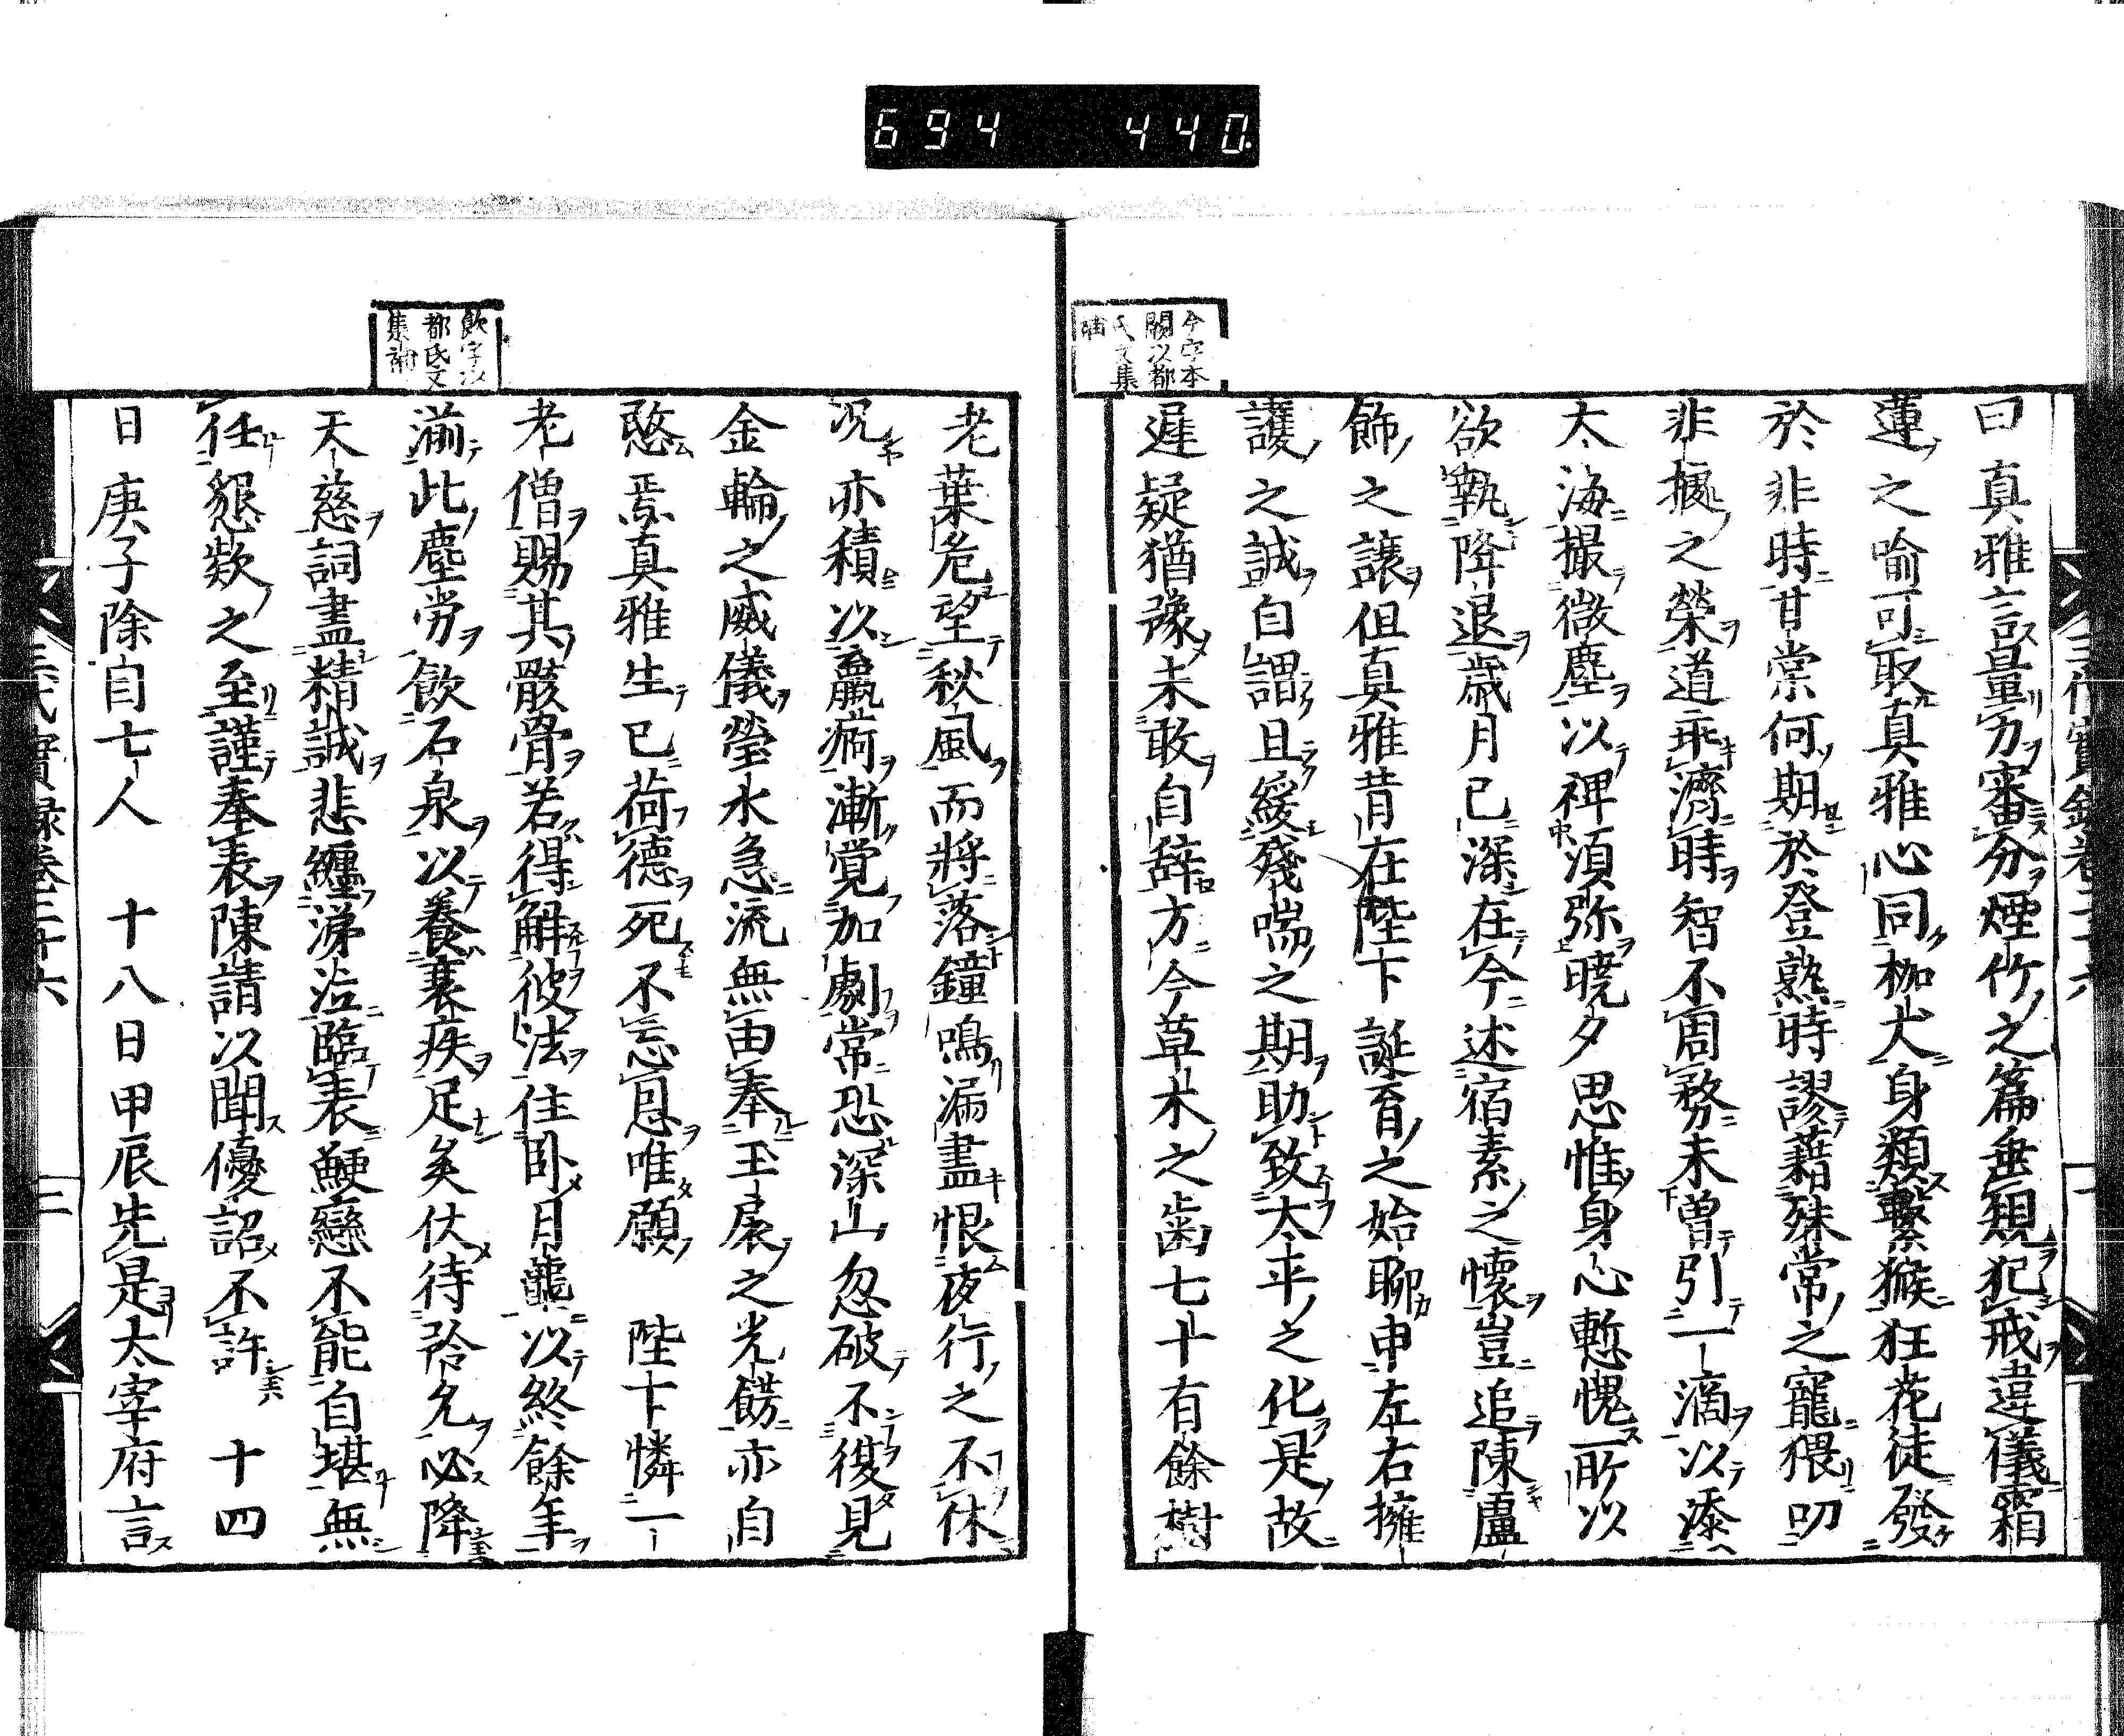 694 440.
今字本
闕以都
氏文集
補
曰真雅言量力審分煙竹之篇垂規犯戒違儀霜
蓮之喩可取真雅心同枷犬身類繫猴狂花徒發
於非時甘棠何期於登熟時謬藉殊常之寵猥叨
非據之榮道乖濟時智不周務未曽引一滴以添
大海撮微塵以裨湏弥曉夕思惟身心慙愧所以
欲執降退歳月已深在今述宿素之懷豈追陳盧
飾之讓但真雅昔在陛下誕育之始聊申左右擁
護之誠自謂且緩殘喘之期助致太平之化是故
遅疑猶豫未敢自辞方今草木之歯七十有餘樹
老葉危望秋風而將落鐘鳴漏盡恨夜行之不休
况亦積以羸痾漸覚加劇常恐深山忽破不復見
金輪之威儀瑩水急流無由奉玉扆之光餝亦自
愍焉真雅生已荷德死不忘恩唯願　陛下憐一
老僧賜其骸骨若得解彼法住卧月龕以終餘年
湔此塵労飲石泉以養衰疾足矣伏待矜允必降
天慈詞盡精誠悲纏涕泣臨表鯁戀不能自堪無
任懇欵之至謹奉表陳請以聞優詔不許　十四
日庚子除目七人　十八日甲辰先是太宰府言
飲字以
都氏文
集補
三代實録巻三十六
二